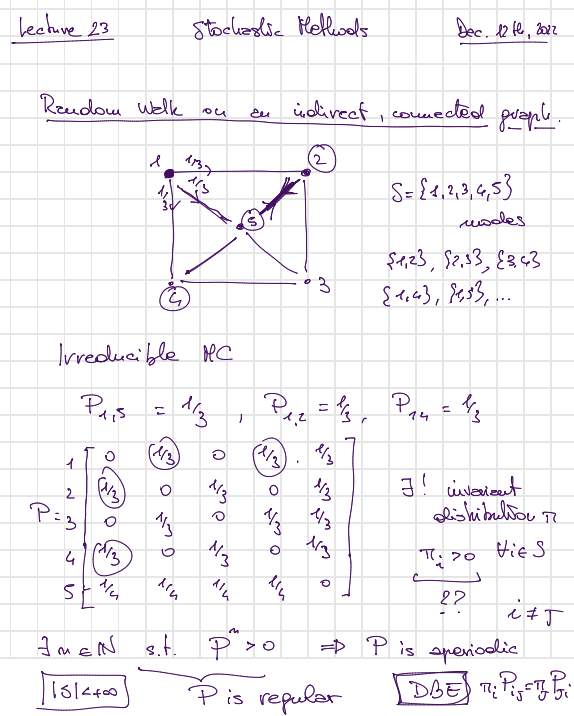 Lecture 23 Stochastic Methods Dec. 12th, 2022
Random Walk on an indirect, connected graph.
1 1/3 2
1/3 1/3
5
4 3
S={1,2,3,4,5}
nodes
{1,2}, {2,3}, {3,4}
{1,4}, {1,5}, ...
Irreducible MC
P_{1,5} = 1/3, P_{1,2} = 1/3, P_{14} = 1/3
P =
1 [ 0 1/3 0 1/3 1/3 ]
2 [ 1/3 0 1/3 0 1/3 ]
3 [ 0 1/3 0 1/3 1/3 ]
4 [ 1/3 0 1/3 0 1/3 ]
5 [ 1/4 1/4 1/4 1/4 0 ]
∃! invariant
distribution π
π_i > 0 ∀i∈S
??
i ≠ J
∃ n ∈ ℕ s.t. P^n > 0 ⇒ P is aperiodic
|S|<+∞ P is regular DBE π_i P_{ij} = π_j P_{ji}